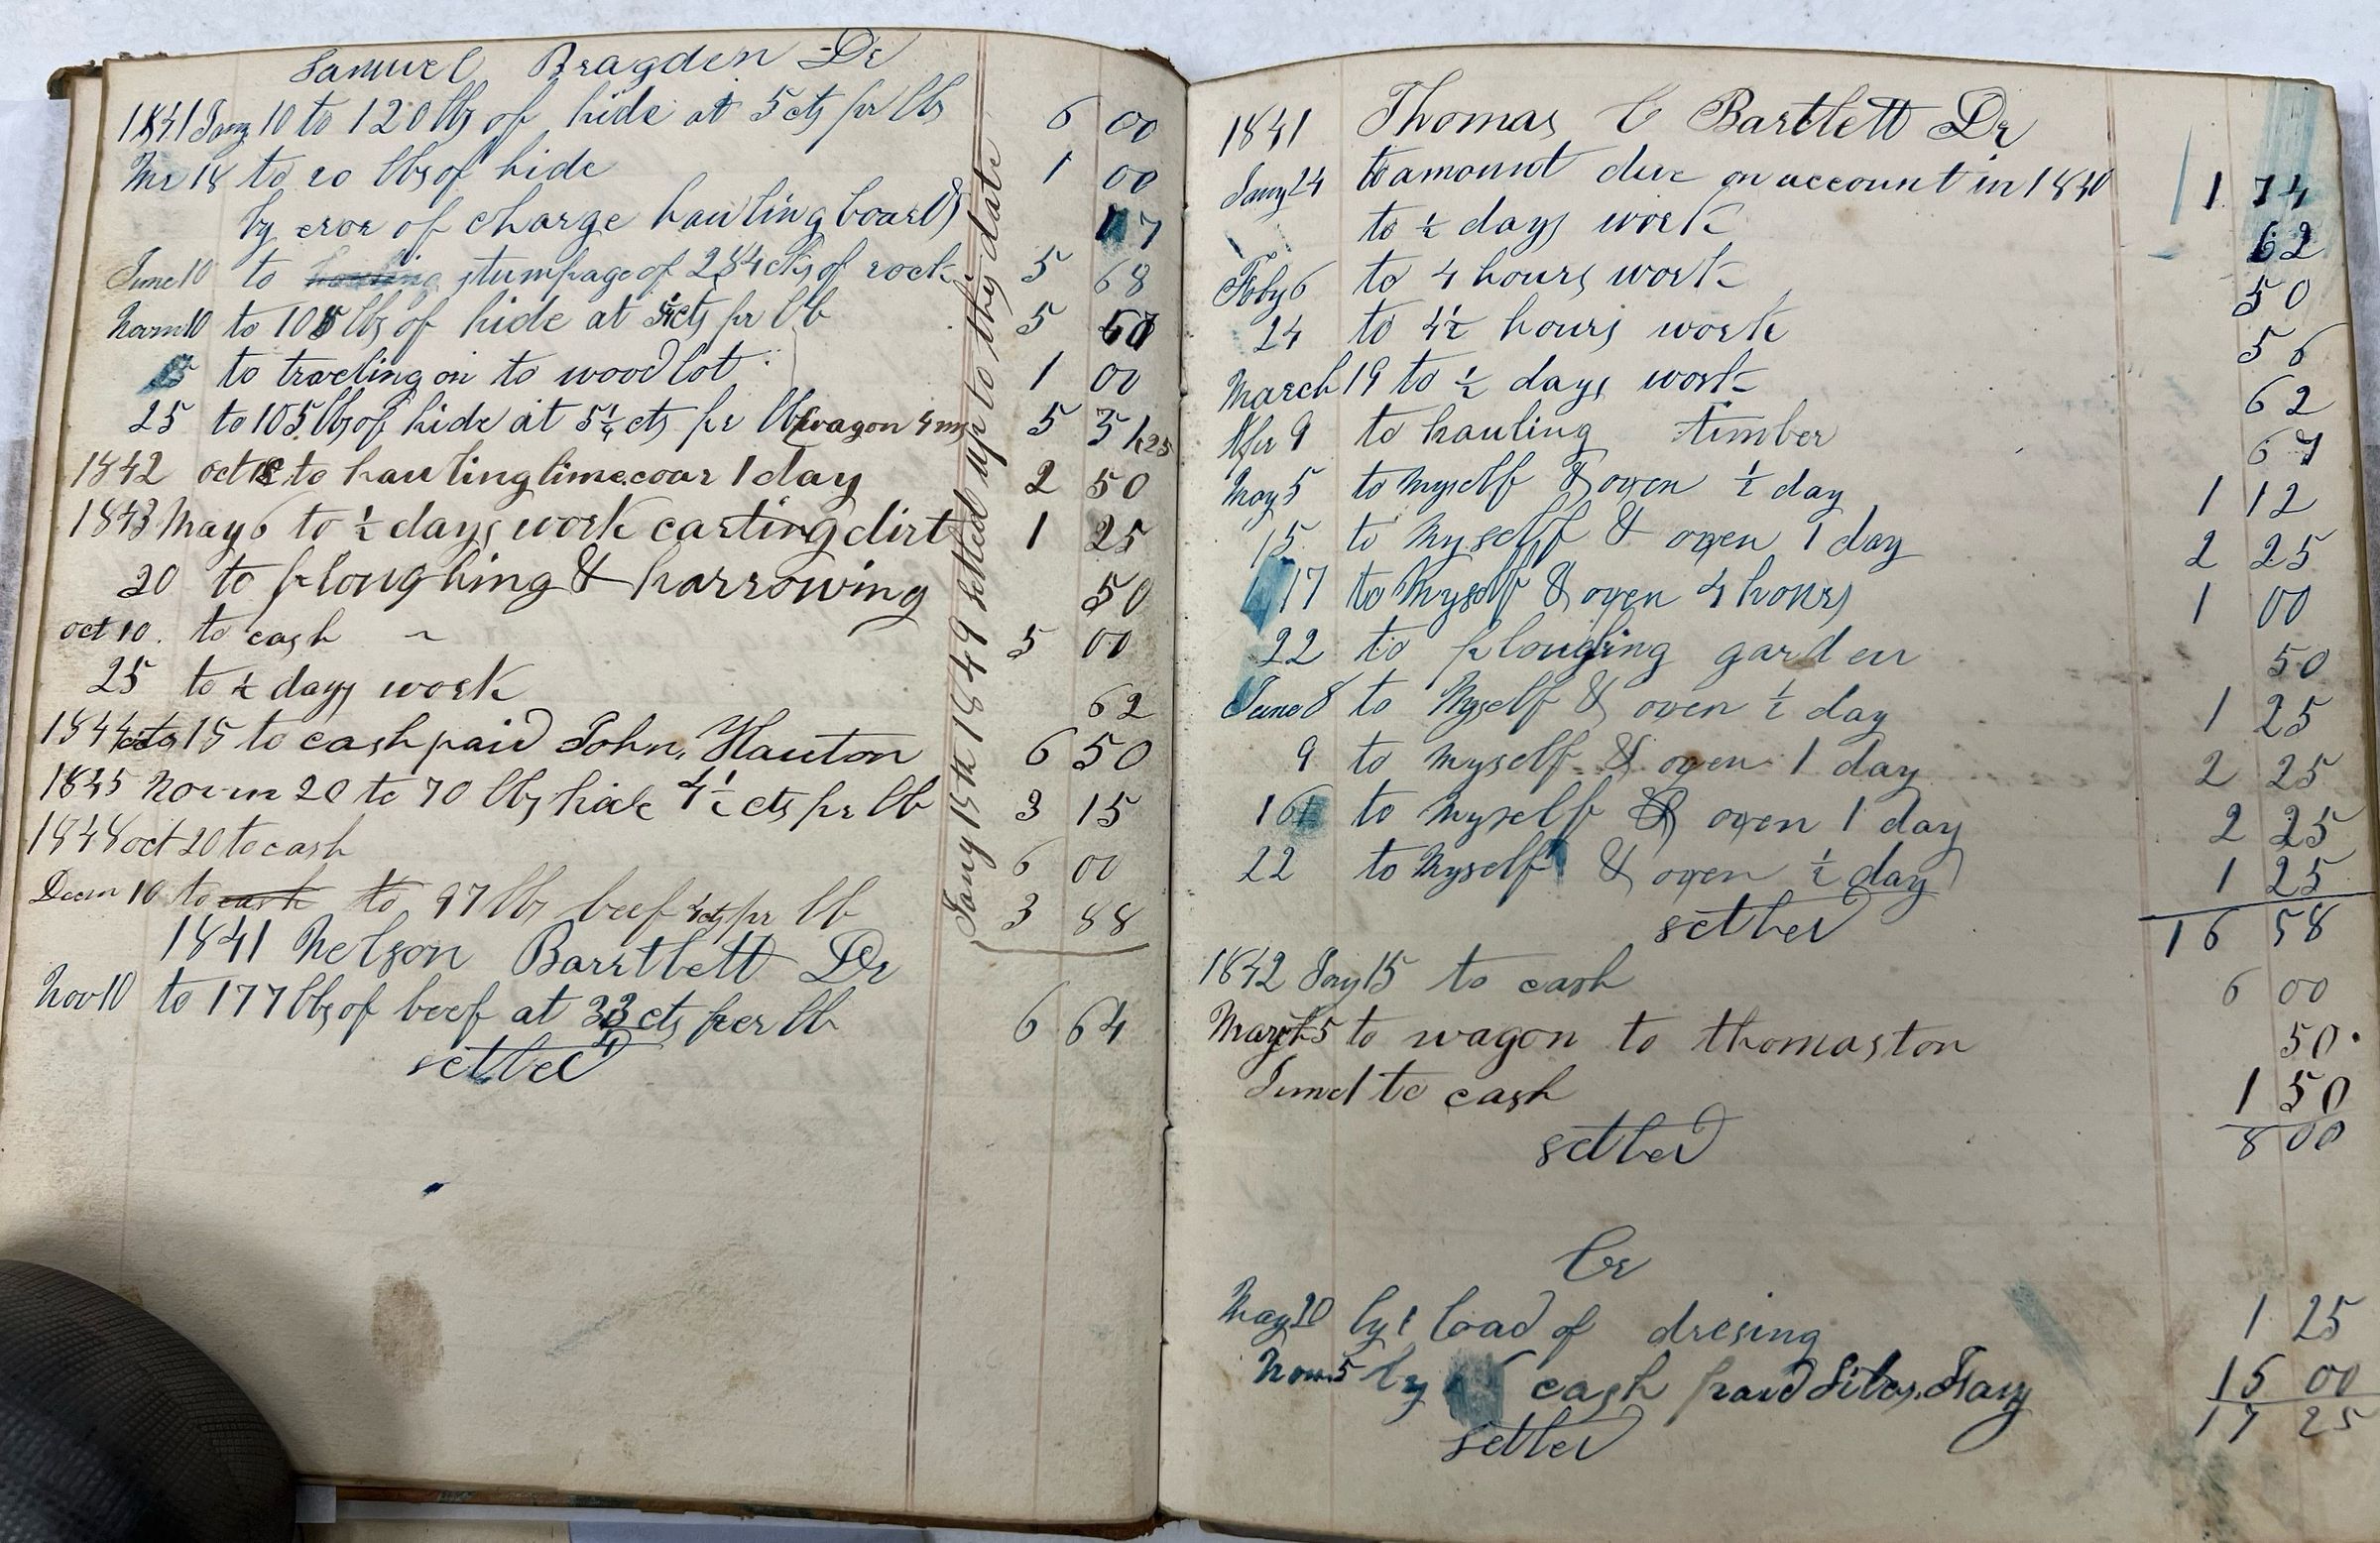 Samuel Bragden Dr
1841 Jany 10 to 120 lbs of hide at 5 cts pr lbs 6 00
to 20 lbs of hide 1 00
by eror of charge hauling boards 17
June 10 to hauling stumpage of 284 cks of rock 5 68
Novm 10 to 105 lbs of hide at cts pr lb 5
to traveling on to wood lot 1 00
25 to 105 lbs of hide at 5¼ cts pr lb wagon 5 51
1842 oct 18 to hauling lime coar 1 day 2 50
1843 May 6 to ½ days work casting dirt 1 25
20 to ploughing & harrowing 50
oct 10. to cash 5 00
25 to ½ days work 62
1844 15 to cash paid John, Hanton 6 50
1845 Novm 20 to 70 lbs hide 4½ cts pr lb 3 15
1848 oct 20 to cash 6 00
Decm 10 to cash to 97 lbs beef 4 cts pr lb 3 88
Jany 15th 1849 settled up to this date
1841 Nelson Barrtlett Dr
Nov 10 to 177 lbs of beef at 3¾ cts per lb 6 64
settled
1841 Thomas C Bartlett Dr
Jany 24 to amount due on account in 1840 1 74
to ½ days work 62
Feby 6 to 4 hours work 50
24 to 4½ hours work 56
March 19 to ½ days work 62
Apr 9 to hauling timber 67
May 5 to Myself & oxen ½ day 1 12
15 to Myself & oxen 1 day 2 25
17 to Myself & oxen 4 hours 1 00
22 to plouging garden 50
June 8 to Myself & oxen ½ day 1 25
9 to Myself & oxen 1 day 2 25
16 to Myself & oxen 1 day 2 25
22 to Myself & oxen ½ day 1 25
settled 16 58
1842 Jany 15 to cash 6 00
March 5 to wagon to thomaston 50
June 1 to cash 1 50
8 00
settled
Cr
May 20 by 1 load of dresing 1 25
Nov 5 by cash paid 16 00
17 25
settled